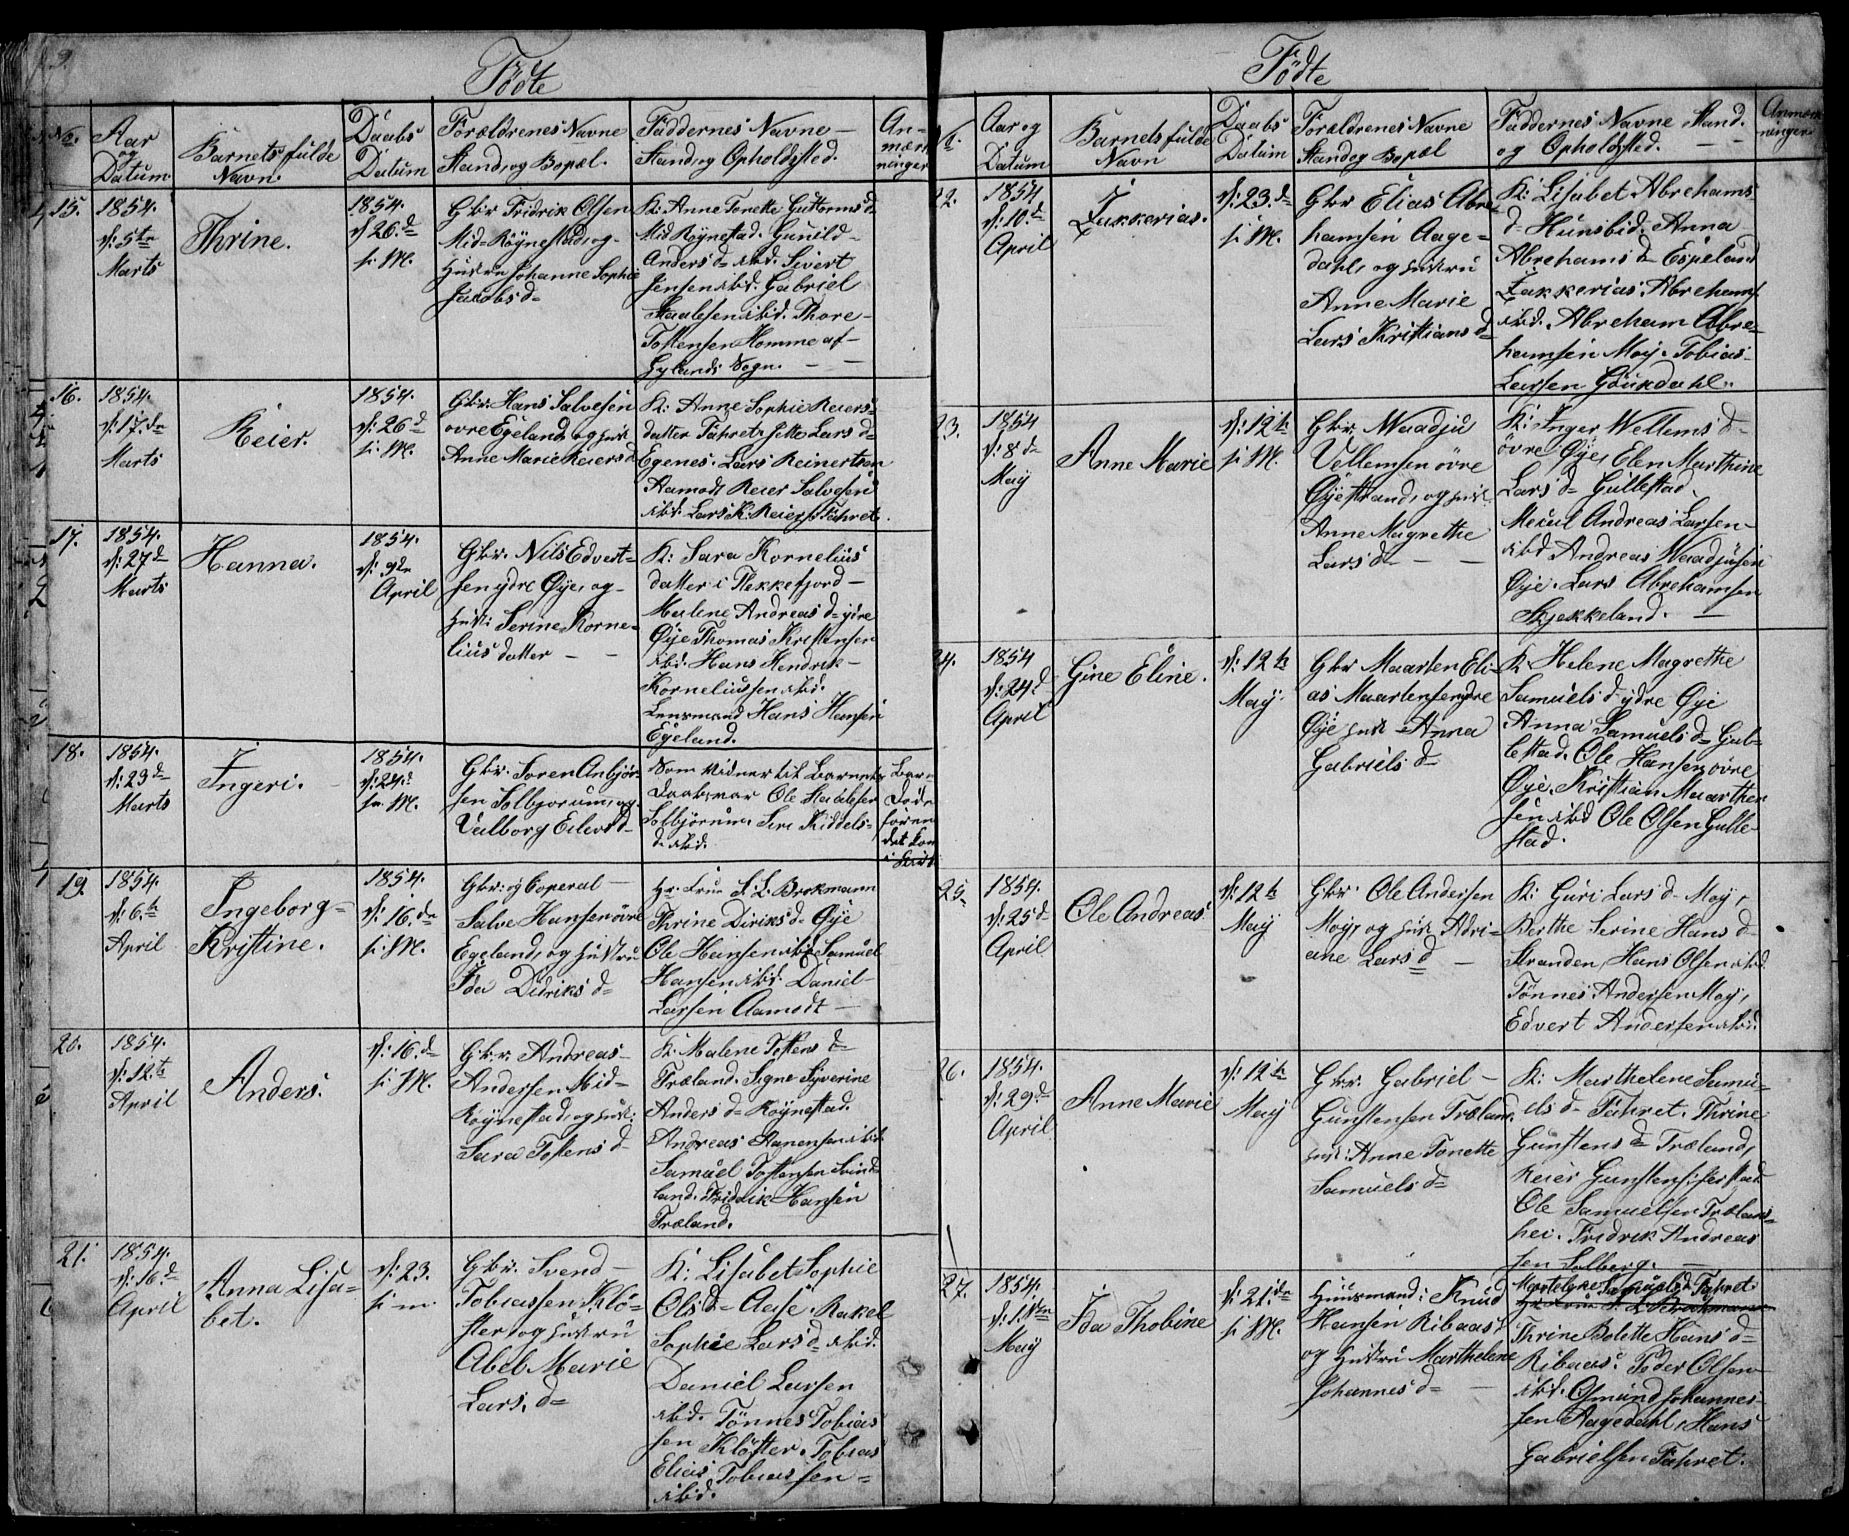 9.
Födte
No.
Aar
og
Datum
Barnets fulde
Navn.
Daabs
Datum
Forældrenes Navne
Stand, og Bopæl.
Faddernes Navne –
Stand, og Opholdsted.
An-
mærk
ninger
15.
1854.
d: 5te
Marts
Thrine.
1854.
d 26.d
i: M.
Gbr Fridrik Olsen
Mid-Röynestad, og
Hustru Johanne Sophie
Jacobs d–
K: Anne Tonette Guttorms d–
Mid Röynestad. Gunild
Anders d– ibid. Sivert
Jensen ibid. Gabriel
Staalesen ibid. Thore
Tostensen Homme af
Gylands Sogn. –
16.
1854.
d: 17.de
Marts
Reier.
1854.
d: 26d
i: M.
Gbr: Hans Salvesen
ovre Egeland og hust
Anne Marie Reiers d
K: Anne Sophie Reiers
datter Fahret, Jette Lars d–
Egenes. Lars Reinertsen
Aamodt Reier Salvesen
ibid. Lars K. Reiers Fahret.
17.
1854.
d: 27d
Marts
Hanna.
1854.
d: 9de
April
Gbr. Nils Edvert-
sen ydre Øye, og
hust: Serine Korne-
lius datter – –
K: Sara Kornelius
datter i Flekkefjord –
Malene Andreas d– ydre
Øye Thomas Kristensen
ibid. Hans Hendrik
Korneliussen ibid.
Lensmand Hans Hansen
Egeland.
18.
1854.
d: 29d
Marts
Ingeri.
1854.
d: 24.d
i: M.
Gbr. Soren Anbjör-
sen Solbjorum, og
Valborg Eilers d–
Som Vidner til Barnets
Daab, var Ole Staalesen
Solbjörum. Siri Kiddels-
d. ibid.
Bar
Döde
för en
det kom
i Kirke
19.
1854.
d: 6.te
April
Ingeborg
Kristine.
1854.
d: 16.de
i: M.
Gbr: og Coperal –
Salve Hansen övre
Egeland, og hustru
Ida Didriks d–
Hr. Frue S. L. Brokmann
Thrine Diriks d– Øye
Ole Hansen ibid Samuel
Hansen ibid. Daniel
Larsen Aamodt –
20.
1854.
d: 12.te
April
Anders.
d: 16.de
i: M.
Gbr. Andreas
Andersen Mid-
Röynestad, og hust:
Sara Tostens d
K: Malene Tostens d–
Træland. Signe Syverine
Anders d– Röynestad.
Andreas Hanensen ibid
Samuel Tostensen Svind-
land. Fridrik Hansen
Træland.
21.
1854.
d: 16.d
April
Anna Lisa-
bet.
d: 23.
i: m.
Gbr: Svend –
Tobiassen Klö-
ster, og hustru
Abel Marie
Lars. d–
K: Lisabet Sophie
Ols d– Aase. Rakel
Sophie Lars d– ibid.
Daniel Larsen
ibid. Tönnes Tobias
sen Klöster. Tobias
Elias Tobiassen –
ibid.
Födte
N.
Aar og
Datum
Barnets fulde
Navn
Daabs
Datum
Forældrenes Navne
Stand og Bopæl
Faddernes Navne Stand.
og Opholdsted. – –
Anmærk
ninger
22.
1854
d: 10.d
April
Zakkerias.
d: 23.d
i: M.
Gbr Elias Abre-
hamsen Aage-
dahl, og hustru
Anne Marie
Lars Kristians d–
K: Lisabet Abrehams
d– Hunsbid. Anna
Abrehams d– Espeland
Zakkerias Abrehams
ibid. Abreham Abre-
hamsen Moy. Tobias
Larsen Göukdahl.
23.
1854
d: 8 d
May
Anne Marie
d: 12te
i: M.
Gbr. Naadju
Vellemsen övre
Øye strand, og hust
Anne Magrethe
Lars d– – –
K: Inger Wellems d–
övre Øye, Elen Marthine
Lars d– Gullestad.
Mecul Andreas Larsen
ibid Andreas Naadjusen
Øye. Lars Abrehamsen
Skjekkeland. –
24.
1854
d: 24.d
April
Gine Eline.
d: 12te
May
Gbr Maarten Eli-
as Maartensen ydre
Øye hust – Anna
Gabriels d–
K: Helene Magrethe
Samuels d– ydre Øye
Anna Samuels d– Gul-
lestad. Ole Hansen ovre
Øye. Kristian Maarthen
sen ibid Ole Olsen Gulle-
stad.
25
1854.
d: 25d
April
Ole Andreas
d: 12te
May
Gbr Ole Andersen
Moy, og hust Adri-
ane Lars d –
K: Guri Lars d– Moy,
Berthe Serine Hans d–
Stranden, Hans Olsen ibid.
Tönnes Andersen Moy,
Edvert Andersen ibid.
26.
1854.
d: 29.d
April
Anne Marie
d: 12te
May
Gbr. Gabriel –
Gunstensen Træland.
hust: Anne Tonette
Samuels d–
K: Marthelene Samu-
els d– Fahret. Thrine
Gunstens d– Træland,
Reier Gunstens
Ole Samuelsen Trælands-
hei. Fridrik Andreas
sen Solberg. –
27.
1854.
d: 1.ste
May
Ida Thobine
d: 21.de
i: M.
Huusmand: Knud
Hansen Ribaas,
og hustru Marthelene
Johannes d– –
Martelene Samuels d– Fahret
Hr Frue S. L. Brockmann
Thrine Bolette Hans d–
Ribaas. Peder Olsen
ibid. Osmund Johannes-
sen Aagedahl, Hans
Gabrielsen Fahret.